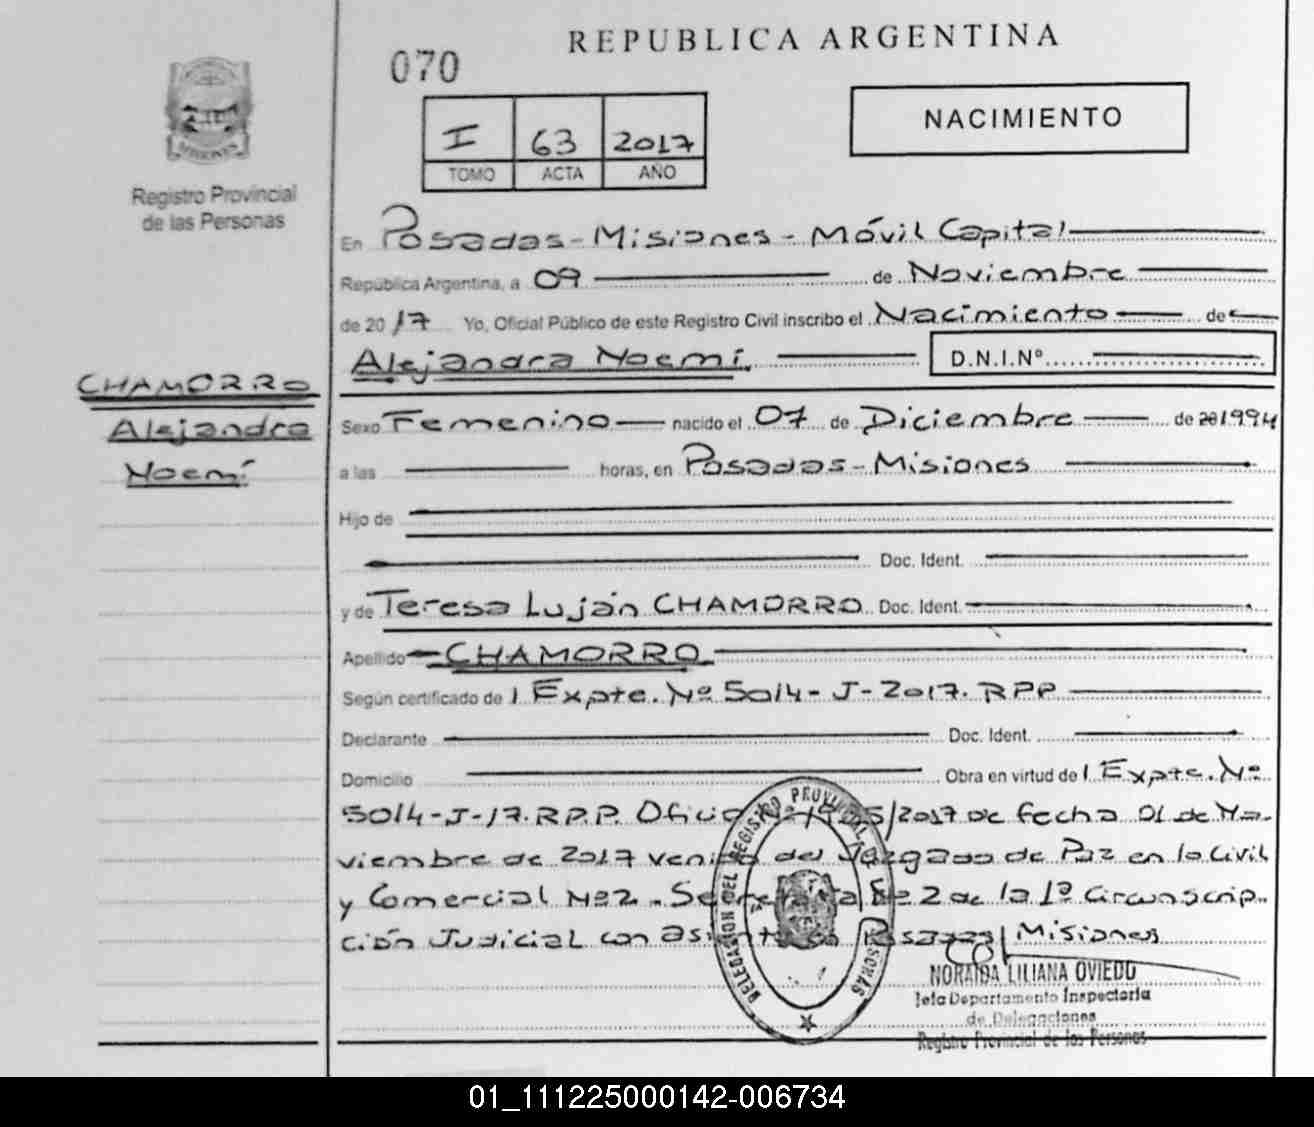 REPUBLICA ARGENTINA
070
NACIMIENTO
I 63 2017
TOMO ACTA AÑO
MISIONES
Registro Provincial
de las Personas
En Posadas - Misiones - Móvil Capital
República Argentina, a 09 de Noviembre
de 2017 Yo, Oficial Público de este Registro Civil inscribo el Nacimiento de
Alejandra Noemí. D.N.I.Nº
CHAMORRO
Alejandra
Noemí
Sexo Femenino nacido el 07 de Diciembre de 20 1994
a las horas, en Posadas - Misiones
Hijo de
Doc. Ident.
y de Teresa Luján CHAMORRO Doc. Ident.
Apellido CHAMORRO
Según certificado de / Expte. Nº 5014 - J - 2017. RPP
Declarante Doc. Ident.
Domicilio Obra en virtud de / Expte. Nº
5014-J-17. R.P.P. Oficio Nº /2017 de fecha 01 de No-
viembre de 2017 venido del Juzgado de Paz en lo Civil
y Comercial Nº2. Secretaría Nº 2 de la 1ª Circunscrip-
ción Judicial con asiento en Posadas / Misiones
DELEGACION DEL REGISTRO PROVINCIAL DE LAS PERSONAS
NORAIDA LILIANA OVIEDO
Jefa Departamento Inspectoría
de Delegaciones
Registro Provincial de las Personas
01_111225000142-006734